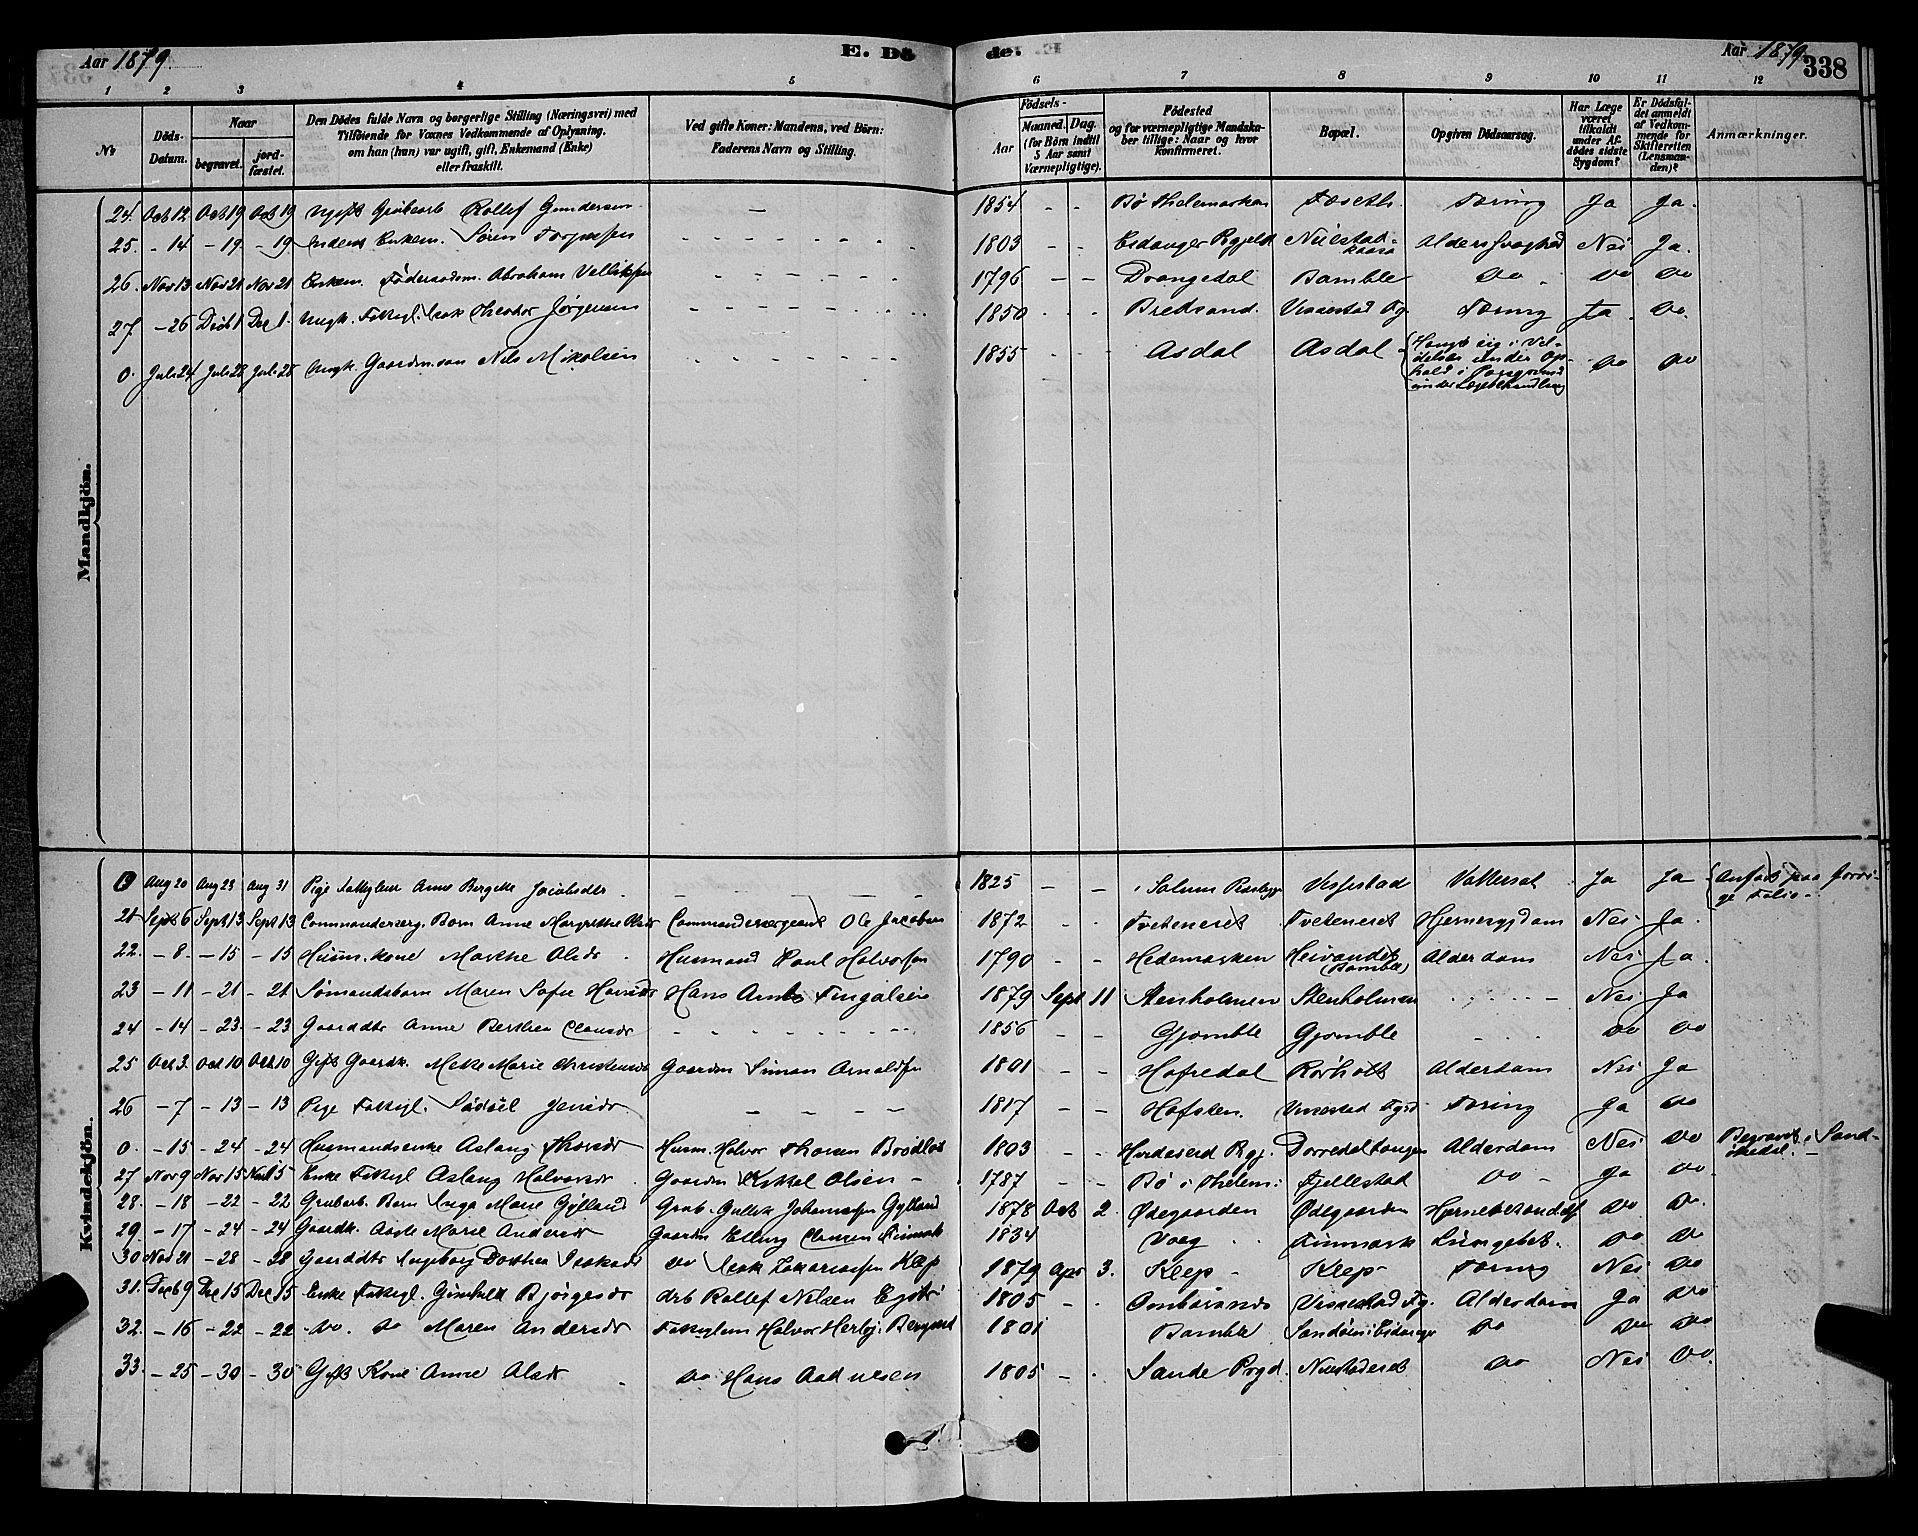 Aar 1879.
E. Dö
de.
Aar 1879.
338
1 2 3 4 5 6 7 8 9 10 11 12
No
Döds-Datum.
Naar
begravet.
jord-fæstet.
Den Dödes fulde Navn og borgerlige Stilling (Næringsvei) med
Tilföiende for Voxnes Vedkommende af Oplysning,
om han (hun) var ugift, gift, Enkemand (Enke)
eller fraskilt.
Ved gifte Koner: Mandens, ved Börn:
Faderens Navn og Stilling.
Födsels-
Aar
Maaned. Dag.
(for Börn indtil
5 Aar samt
Værnepligtige).
Födested
og for værnepligtige Mandska-
ber tillige: Naar og hvor
konfirmeret.
Bopæl.
Opgiven Dödsaarsag.
Har Læge
været
tilkaldt
under Af-
dödes sidste
Sygdom?
Er Dödsfal-
det anmeldt
af Vedkom-
mende for
Skifteretten
(Lensman-
den)?
Anmærkninger.
Mandkjön.
24. Oct 12 Oct 19 Oct 19 Ugift Grubearb Rollef Gundersen — 1854 - - Bø Thelemarken Foseth Tæring Ja Ja.
25. - 14 - 19. - 19 Enkem. Søren 1803 - - Eidanger Prgjeld Alderssvaghed Nei Ja.
26. Nov 13 Nov 21 Nov 21 Enkem. Føderaadsm. Abraham 1796 - - Drangedal Bamble Do Do Do
27 - 26 Decb 1 Dec 1. Ungk. Fattigl. Isak Theodor Jørgensen 1850 Bredsand. Vissestad Fg Tæring Ja. Do.
0. Juli 24 Juli 28 Juli 28 Ungk. Gaardm.søn Nils Mikalsen 1855 Asdal Asdal Hængt sig i
under Op-
hold i Porsgrund
under Lægebehandling Do Do
Kvindekjön.
Aug 20 Aug 23 Aug 31 Pige Fattiglem Anne Bergitte Jacobsdtr. 1825 - - i Solum Vissestad Vattersot Ja Ja Anført paa forri-
ge Folio.
21 Sept 6 Sept 13 Sept 13 Commandersergt. Barn Anne Margrethe Olsdr Commandersergeant Ole Jacobsen 1872 Tveteneret Tveteneret Hjernesygdom Nei Ja.
22. - 8. - 15 - 15 Husm.kone Marthe Olsdr Husmand Poul Halvorsen 1790 Hedemarken Heivandet
(Bamble) Alderdom Nei Ja.
23 - 11 - 21 - 21 Sømandsbarn Maren Sofie Hansdr Hans 1879 Sept 11 Stenholmen Stenholmen Nei Ja
24 - 14 - 23. - 23 Gaarddtr Anne Berthea Clausdr 1856 Gjømble Gjømble Do Do
25 Oct 3. Oct 10 Oct 10 Gift Gaardk. Mette Marie Christensdr Gaardm Simon Arnoldsen 1801 Hafredal Rørholt Alderdom Nei Ja
26 - 7 - 13 - 13 Pige Fattigl. Jensdr. 1817 Hafsten. Vissestad Fgd Tæring Ja Do
0. - 15 - 24 - 24 Husmandsenke Aslaug Thorsdr Husm. Halvor Thorsen 1803 Prgj. Alderdom Nei Do Begravet i Sand-
økedal.
27 Nov 9 Nov 15 Nov 15 Enke Fattigl Aslaug Halvorsdr Gaardm Kittel Olsen 1787 Bø i Thelem: Fjellestad Do Ja Do.
28. - 18 - 22 - 22 Grubarb. Barn Inga Marie Gylland Grub. Gullik Johannessen Gylland 1878 Oct 2. Ødegaarden Ødegaarden Do Do.
29. - 17 - 24 - 24 Gaardk. Marie Andersdr Gaardm Elling Clausen Finmark 1834 Vaag Finmark Lungebet. Do Do
30 Nov 21 - 28 - 28 Gaarddtr Ingeborg Dorthea Isaksdr Do Isak Zakariassen Klep 1879 Apr 3. Kleep Kleep Tæring Nei Do
31. Decb 9 Dec 15 Dec 15 Enke Fattigl. Gunhild Bjørgesdr Arb Rollef Nilsen 1805 Vissestad Fg. Alderdom Ja Do
32. - 16 - 22 - 22 - Do. Do Maren Andersdr Fattiglem Halvor 1801 Bamble Sandøen i Eidanger Do Do Do
33. - 25 - 30 - 30 Gift Kone Anne Olsdr Do Hans Aadnesen 1805 Sande Prgd. Do Nei Do.